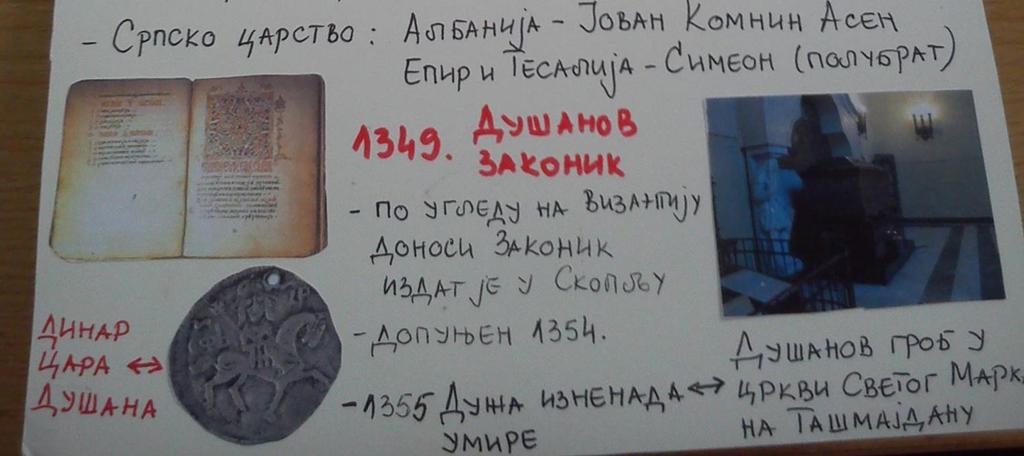 - Српско царство: Албанија - Јован Комнин Асен
Епир и Тесалија - Симеон (полубрат)
1349. Душанов
Законик
- по угледу на Византију
доноси Законик
издат је у Скопљу
- допуњен 1354.
- 1355 Душа изненада ↔
умире
Динар
цара ↔
Душана
Душанов гроб у
цркви Светог Марка
на Ташмајдану